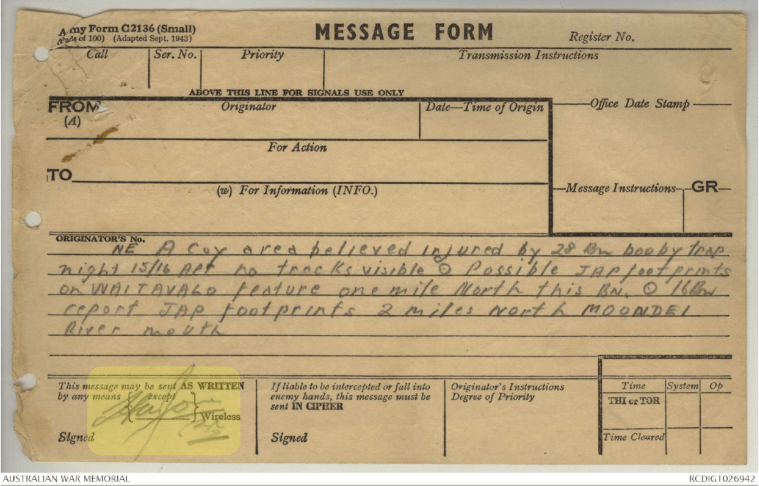 my Form C2136 (Small)
of 100) (Adapted Sept. 1943)
MESSAGE FORM
Register No.
Call
Ser. No.
Priority
Transmission Instructions
ABOVE THIS LINE FOR SIGNALS USE ONLY
FROM
(A)
Originator
Date—Time of Origin
Office Date Stamp
For Action
TO
(w) For Information (INFO.)
Message Instructions
GR
ORIGINATOR'S No.
NE A Coy area believed injured by 28 Bn booby trap
night 15/16 Apr no tracks visible ⊙ Possible JAP footprints
on WAITAVALO feature one mile North this BN. ⊙ 16 Bn
report JAP footprints 2 miles North MOONDEI
River mouth
This message may be sent AS WRITTEN
by any means except
Wireless
Signed
If liable to be intercepted or fall into
enemy hands, this message must be
sent IN CIPHER
Signed
Originator's Instructions
Degree of Priority
Time
System
Op
THI or TOR
Time Cleared
AUSTRALIAN WAR MEMORIAL
RCDIG1026942